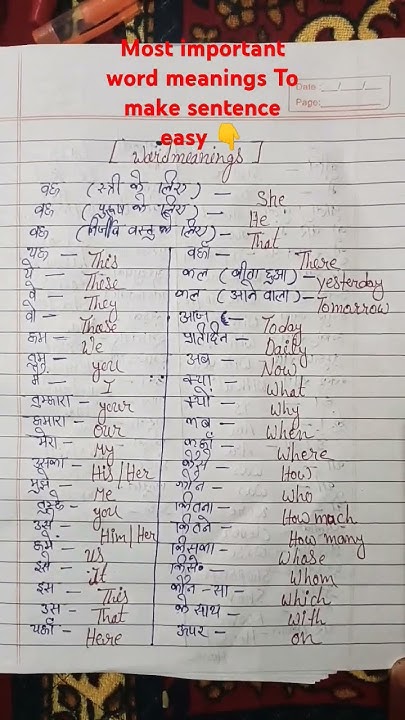 Most important
word meanings To
make sentence
easy 👇
Date : __/__/__
Page:
[ Word meanings ]
वह (स्त्री के लिए) - She
वह (पुरुष के लिए) - He
वह (निर्जीव वस्तु के लिए) - That
यह - This
ये - These
वे - They
वो - Those
हम - We
तुम - you
मैं - I
तुम्हारा - your
हमारा - our
मेरा - My
उसका - His/Her
मुझे - Me
तुम्हे - you
उसे - Him/Her
हमें - us
इसे - It
इस - This
उस - That
यहाँ - Here
वहाँ - There
कल (बीता हुआ) - yesterday
कल (आने वाला) - Tomorrow
आज - Today
प्रतिदिन - Daily
अब - Now
क्या - What
क्यों - Why
कब - When
कहाँ - Where
कैसे - How
कौन - who
कितना - How mach
कितने - How many
किसका - Whose
किसे - Whom
कौन-सा - which
के साथ - with
ऊपर - on